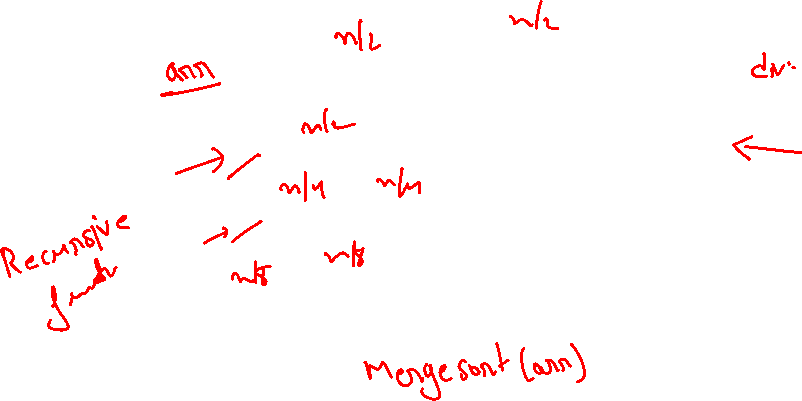 n/2 n/2
arr
n/2
n/4 n/4
Recursive
n/8 n/8
Mergesort(arr)